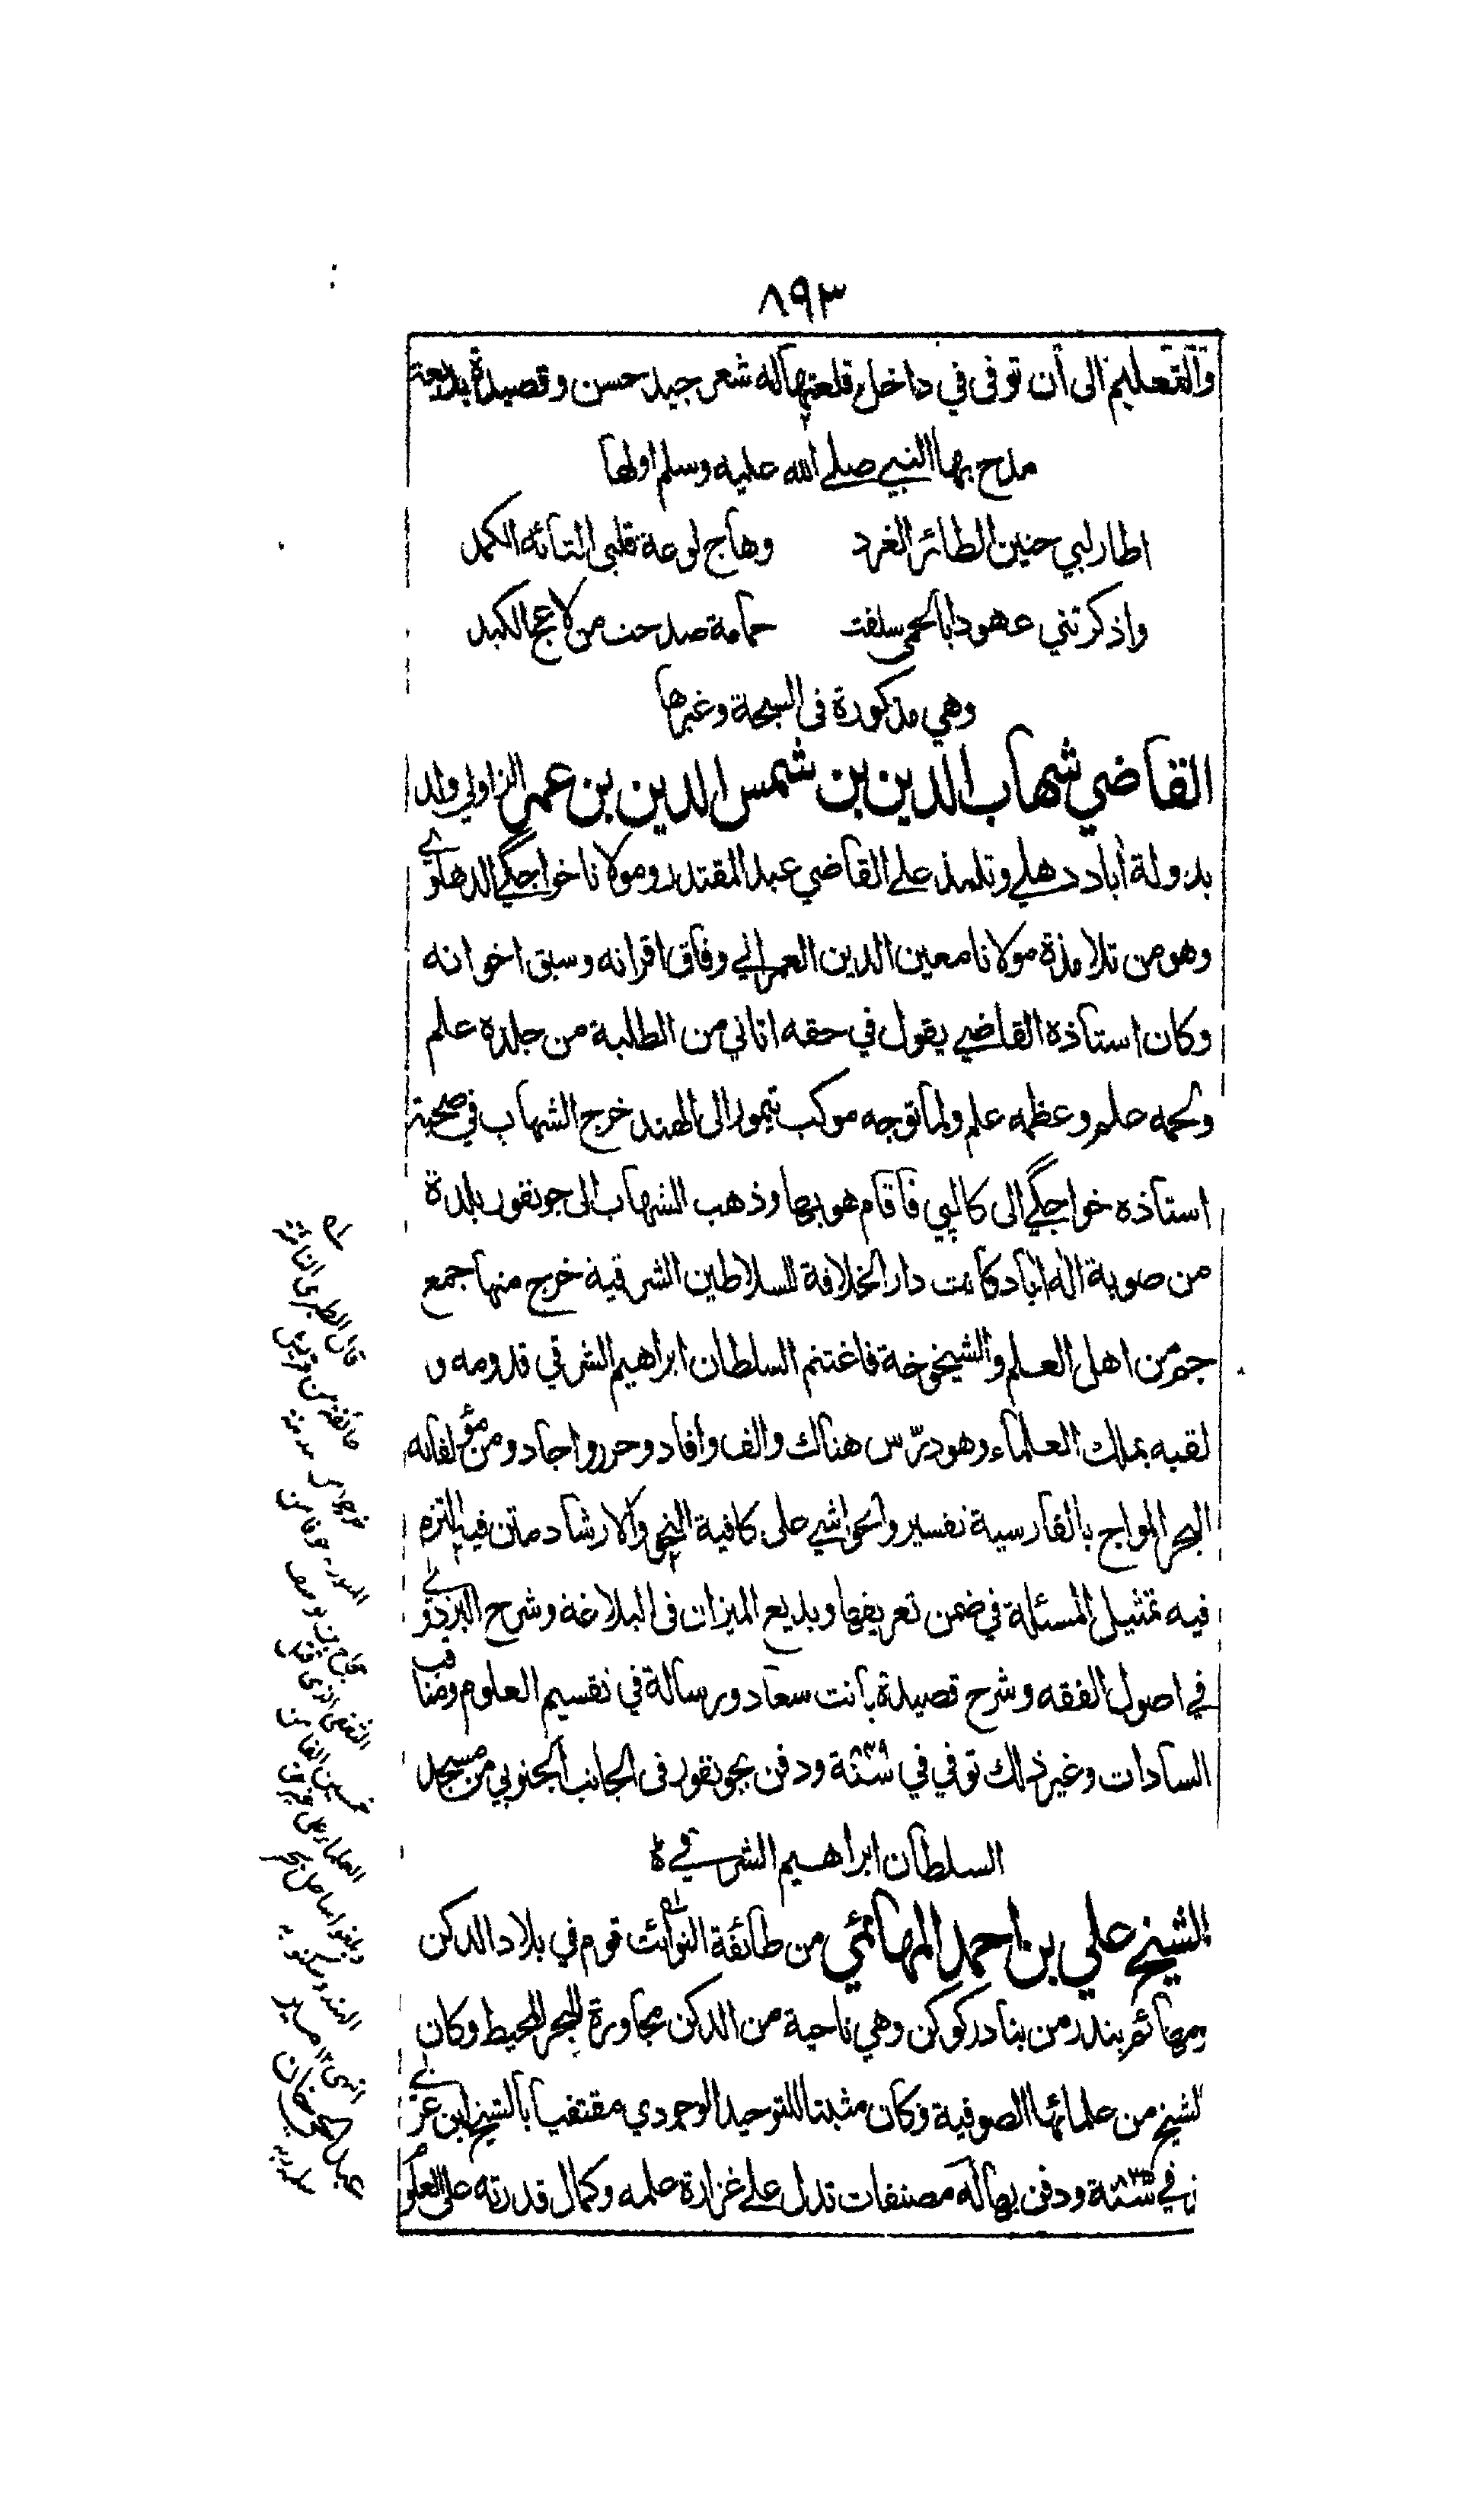 ٨٩٣
والتعليم الى أن توفى في داخل قلعتها له شعر جيد حسن وقصيدة بديعة
مدح بها النبي صلى الله عليه وسلم اولها
اطار لبي حنين الطائر الغرد وهاج لوعة قلبى التائه الكمد
واذكرتني عهودا بالحمى سلفت حمامة صدحت من لاعج الكبد
وهي مذكورة فى السبحة وغيرها
القاضي شهاب الدين بن شمس الدين بن عمر الزاولي ولد
بدولة أباد دهلي وتلمذ على القاضي عبد المقتدر ومولانا خواجگي الدهلوي
وهو من تلامذة مولانا معين الدين العمراني وفاق اقرانه وسبق اخوانه
وكان استاذه القاضي يقول في حقه اتاني من الطلبة من جلده علم
ولحمه علم وعظمه علم ولما توجه موكب تيمور الى الهند خرج الشهاب في صحبة
استاذه خواجگي الى كالپي فاقام هو بها وذهب الشهاب الى جونفور بلدة
من صوبة اله اباد كانت دار الخلافة للسلاطين الشرقية خرج منها جمع
جم من اهل العلم والشيخوخة فاغتنم السلطان ابراهيم الشرقي قدومه و
لقبه بملك العلماء وهو درّس هناك والف وافاد وحرر واجاد ومن مؤلفاته
البحر المواج بالفارسية تفسير والحواشي على كافية النحو والارشاد متن فيه التزم
فيه تمثيل المسئلة في ضمن تعريفها وبديع الميزان فى البلاغة وشرح البزدوي
في اصول الفقه وشرح قصيدة بانت سعاد ورسالة في تقسيم العلوم ومناقب
السادات وغير ذلك توفي في سنة ٨٤٩ ودفن بجونفور فى الجانب الجنوبي من مسجد
السلطان ابراهيم الشرقي
الشيخ علي بن احمد المهائمي من طائفة النوائت قوم في بلاد الدكن
ومهائم بندر من بنادر كوكن وهي ناحية من الدكن مجاورة للبحر المحيط وكان
الشيخ من علمائها الصوفية وكان مثبتا للتوحيد الوجودي مقتفيا بالشيخ ابن عربي
في سنة ٨٣٥ ودفن بها له مصنفات تدل على غزارة علمه وكمال قدرته على العلو
قال الطبرى النائتة
طائفة من قريش
خرجوا من مدينة